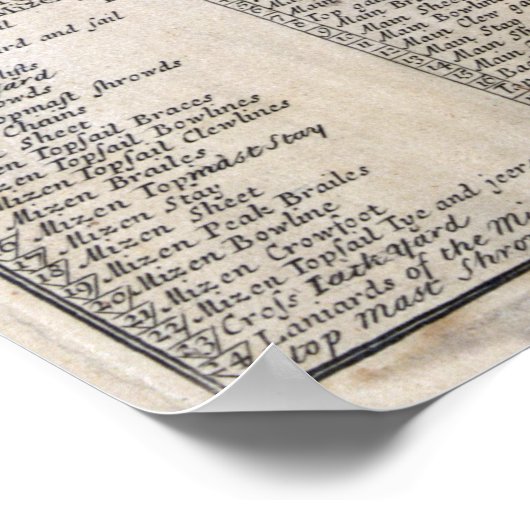 ard and ſail
lifts
ard
owds
opmaſt ſhrowds
Chains
Sheet
en Topſail Braces
zen Topſail Bowlines
izen Topſail Clewlines
Mizen Brailes
Mizen Topmast Stay
Mizen Stay
Mizen Sheet
19 Mizen Peak Brailes
20 Mizen Bowline
21 Mizen Crowfoot
22 Mizen Topſail Tye and jeer
23 Croſs Jack Yard
24 Laniards of the Mi
top mast Shro
Top ga
Main
Main Shee
Main Bowlin
Main Clew ga
Main Stay
Main Sh